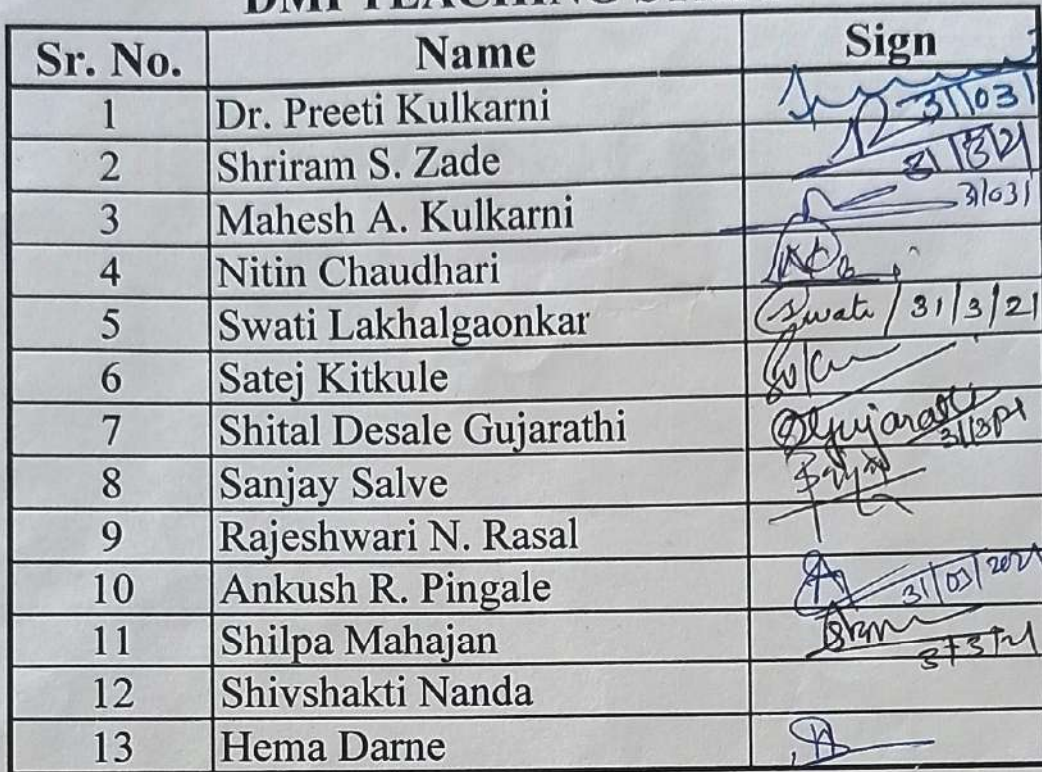 DMI TEACHING
Sr. No. Name Sign
1 Dr. Preeti Kulkarni 31/03/
2 Shriram S. Zade 31/3/21
3 Mahesh A. Kulkarni 31/03/
4 Nitin Chaudhari
5 Swati Lakhalgaonkar Swati / 31/3/21
6 Satej Kitkule
7 Shital Desale Gujarathi
8 Sanjay Salve
9 Rajeshwari N. Rasal
10 Ankush R. Pingale 31/03/2021
11 Shilpa Mahajan
12 Shivshakti Nanda
13 Hema Darne